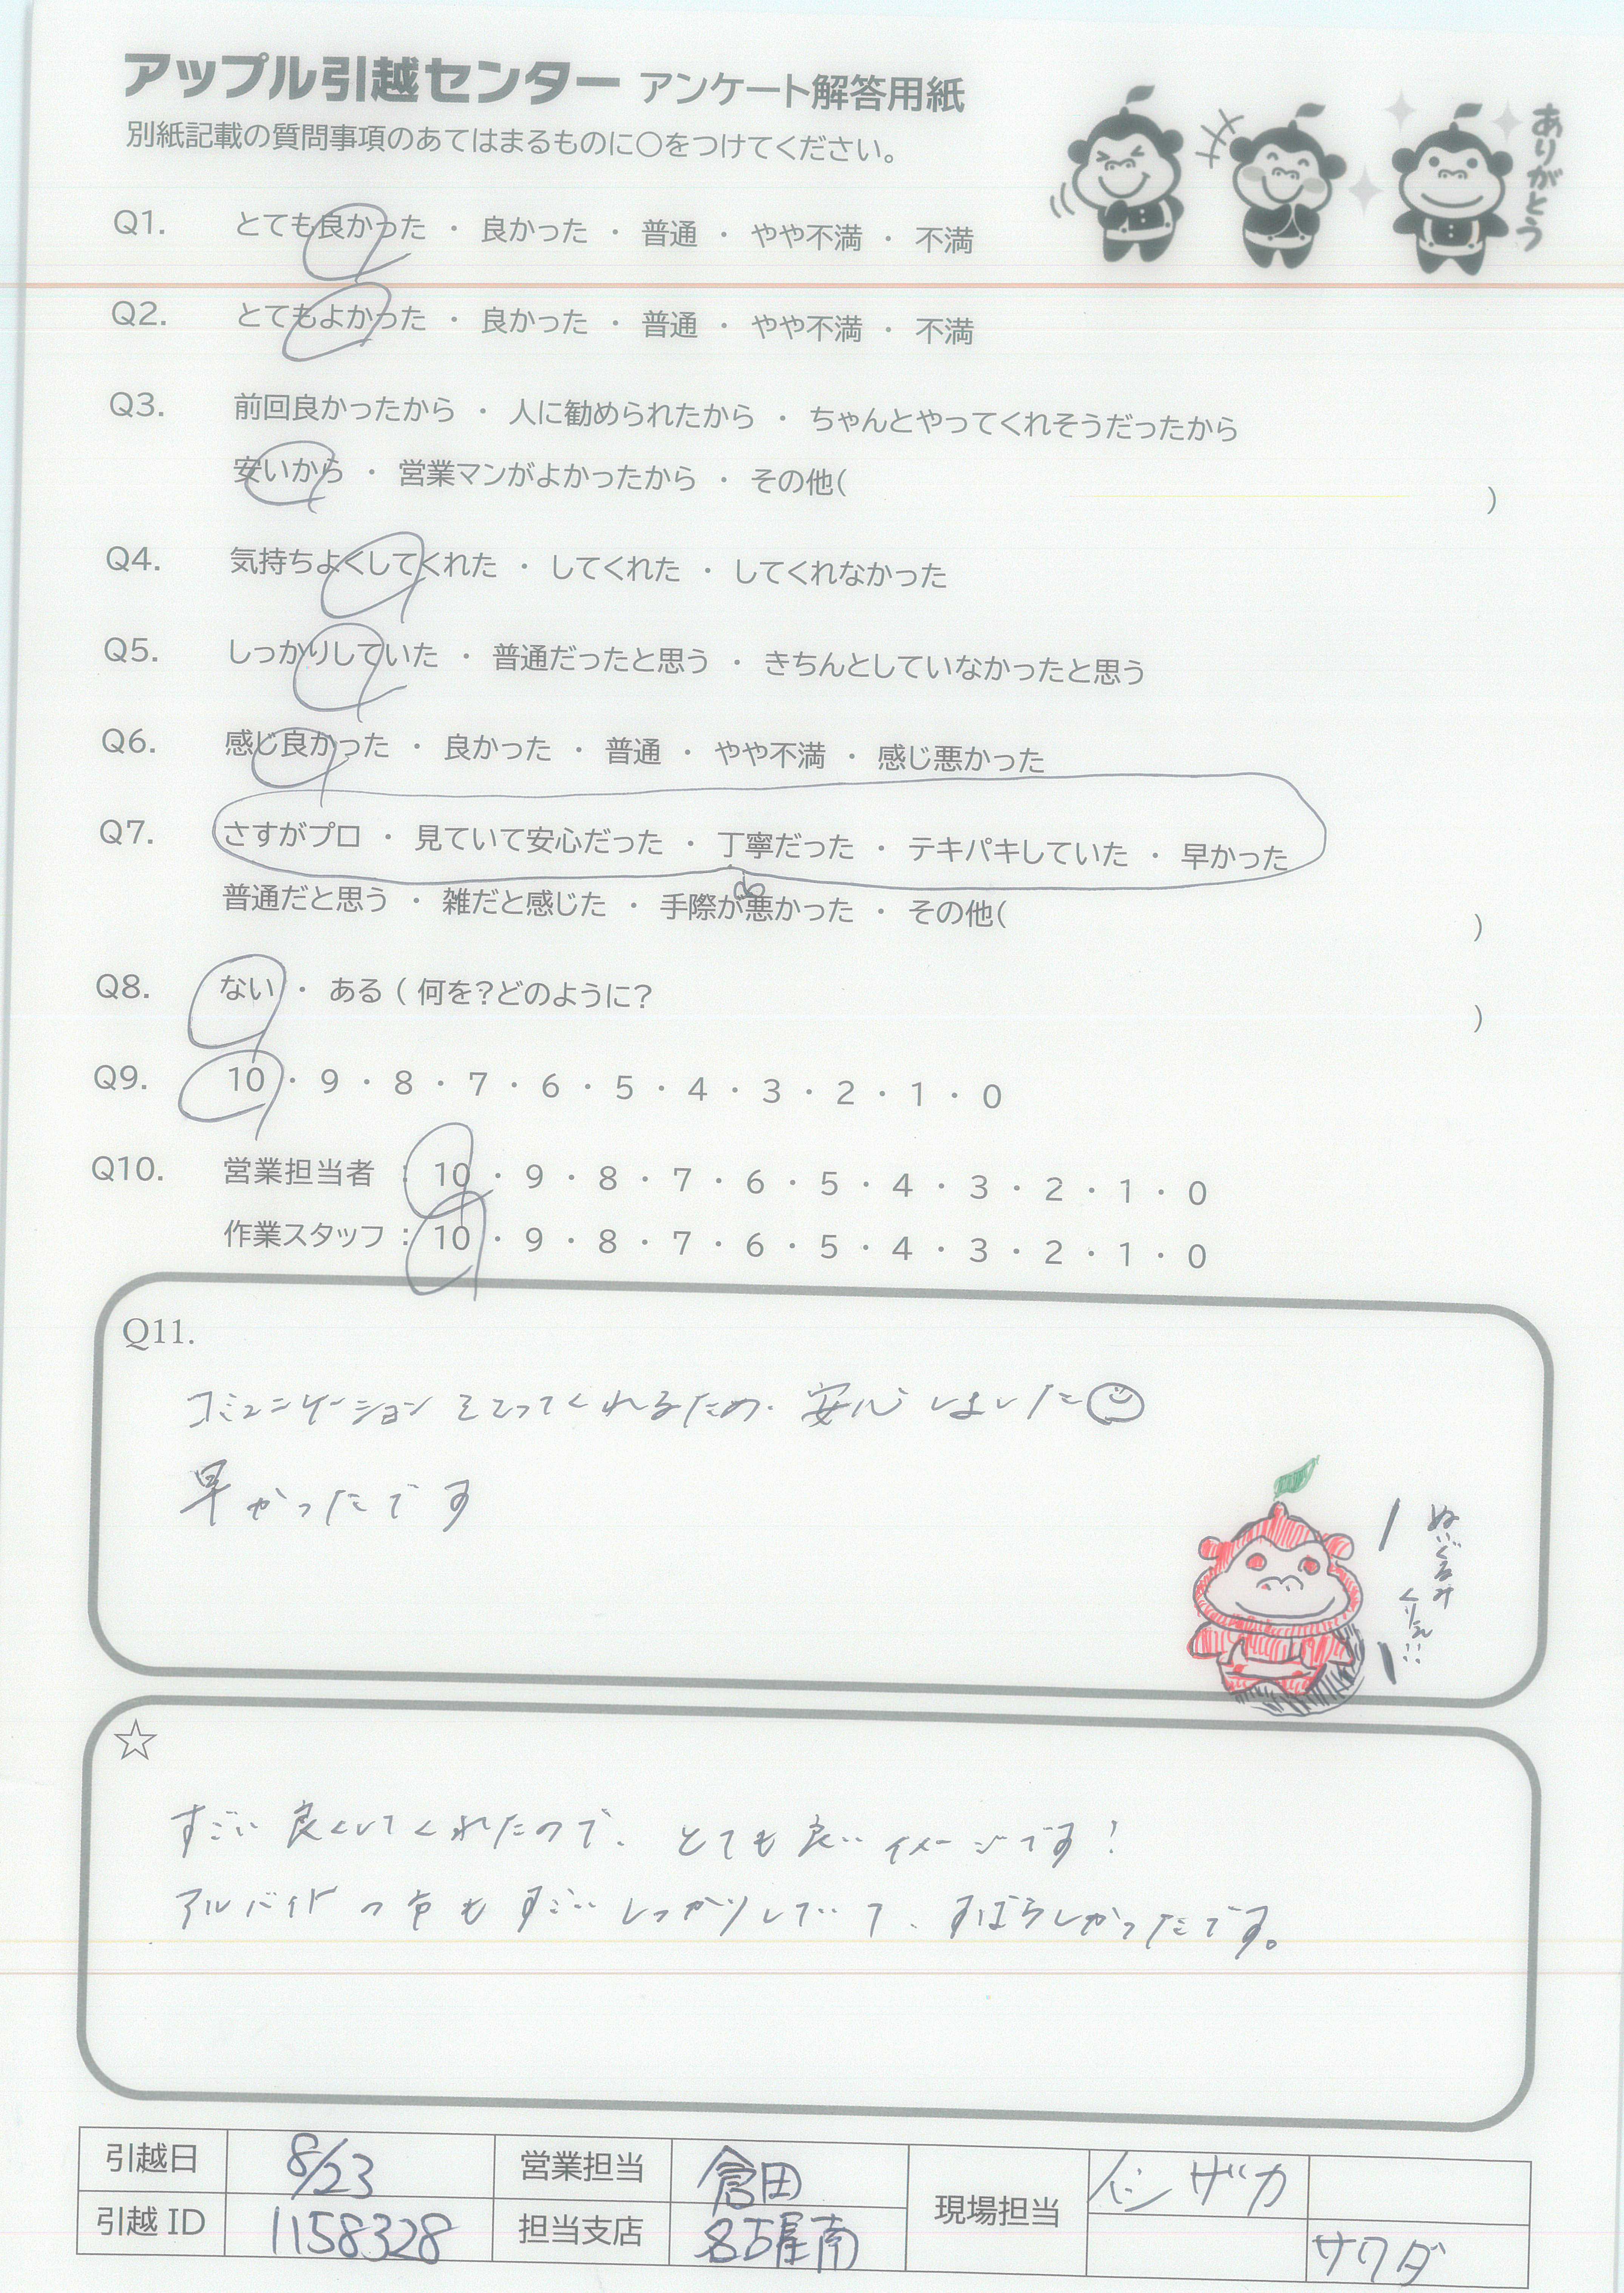 アップル引越センター アンケート解答用紙
別紙記載の質問事項のあてはまるものに○をつけてください。
ありがとう
Q1. とても良かった ・ 良かった ・ 普通 ・ やや不満 ・ 不満
Q2. とてもよかった ・ 良かった ・ 普通 ・ やや不満 ・ 不満
Q3. 前回良かったから ・ 人に勧められたから ・ ちゃんとやってくれそうだったから
安いから ・ 営業マンがよかったから ・ その他( )
Q4. 気持ちよくしてくれた ・ してくれた ・ してくれなかった
Q5. しっかりしていた ・ 普通だったと思う ・ きちんとしていなかったと思う
Q6. 感じ良かった ・ 良かった ・ 普通 ・ やや不満 ・ 感じ悪かった
Q7. さすがプロ ・ 見ていて安心だった ・ 丁寧だった ・ テキパキしていた ・ 早かった
普通だと思う ・ 雑だと感じた ・ 手際が悪かった ・ その他( )
Q8. ない ・ ある ( 何を?どのように? )
Q9. 10 ・ 9 ・ 8 ・ 7 ・ 6 ・ 5 ・ 4 ・ 3 ・ 2 ・ 1 ・ 0
Q10. 営業担当者 : 10 ・ 9 ・ 8 ・ 7 ・ 6 ・ 5 ・ 4 ・ 3 ・ 2 ・ 1 ・ 0
作業スタッフ : 10 ・ 9 ・ 8 ・ 7 ・ 6 ・ 5 ・ 4 ・ 3 ・ 2 ・ 1 ・ 0
Q11.
コミュニケーションをとってくれるため、安心しました
早かったです
ぬいぐるみ
ください
☆
すごい良くしてくれたので、とても良いイメージです!
アルバイトの方もすごいしっかりしていて、すばらしかったです。
引越日 8/23 営業担当 倉田 現場担当 ザカ
引越 ID 1158328 担当支店 名古屋南 サワダ